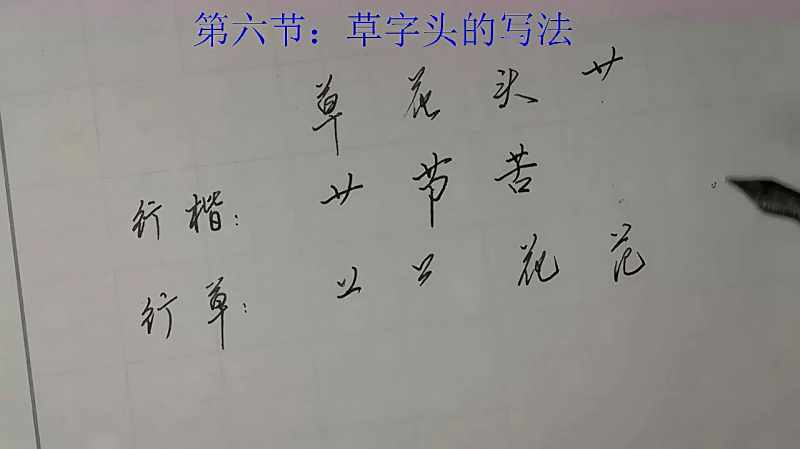 第六节：草字头的写法
草花头艹
行楷：艹节苦
行草：花范